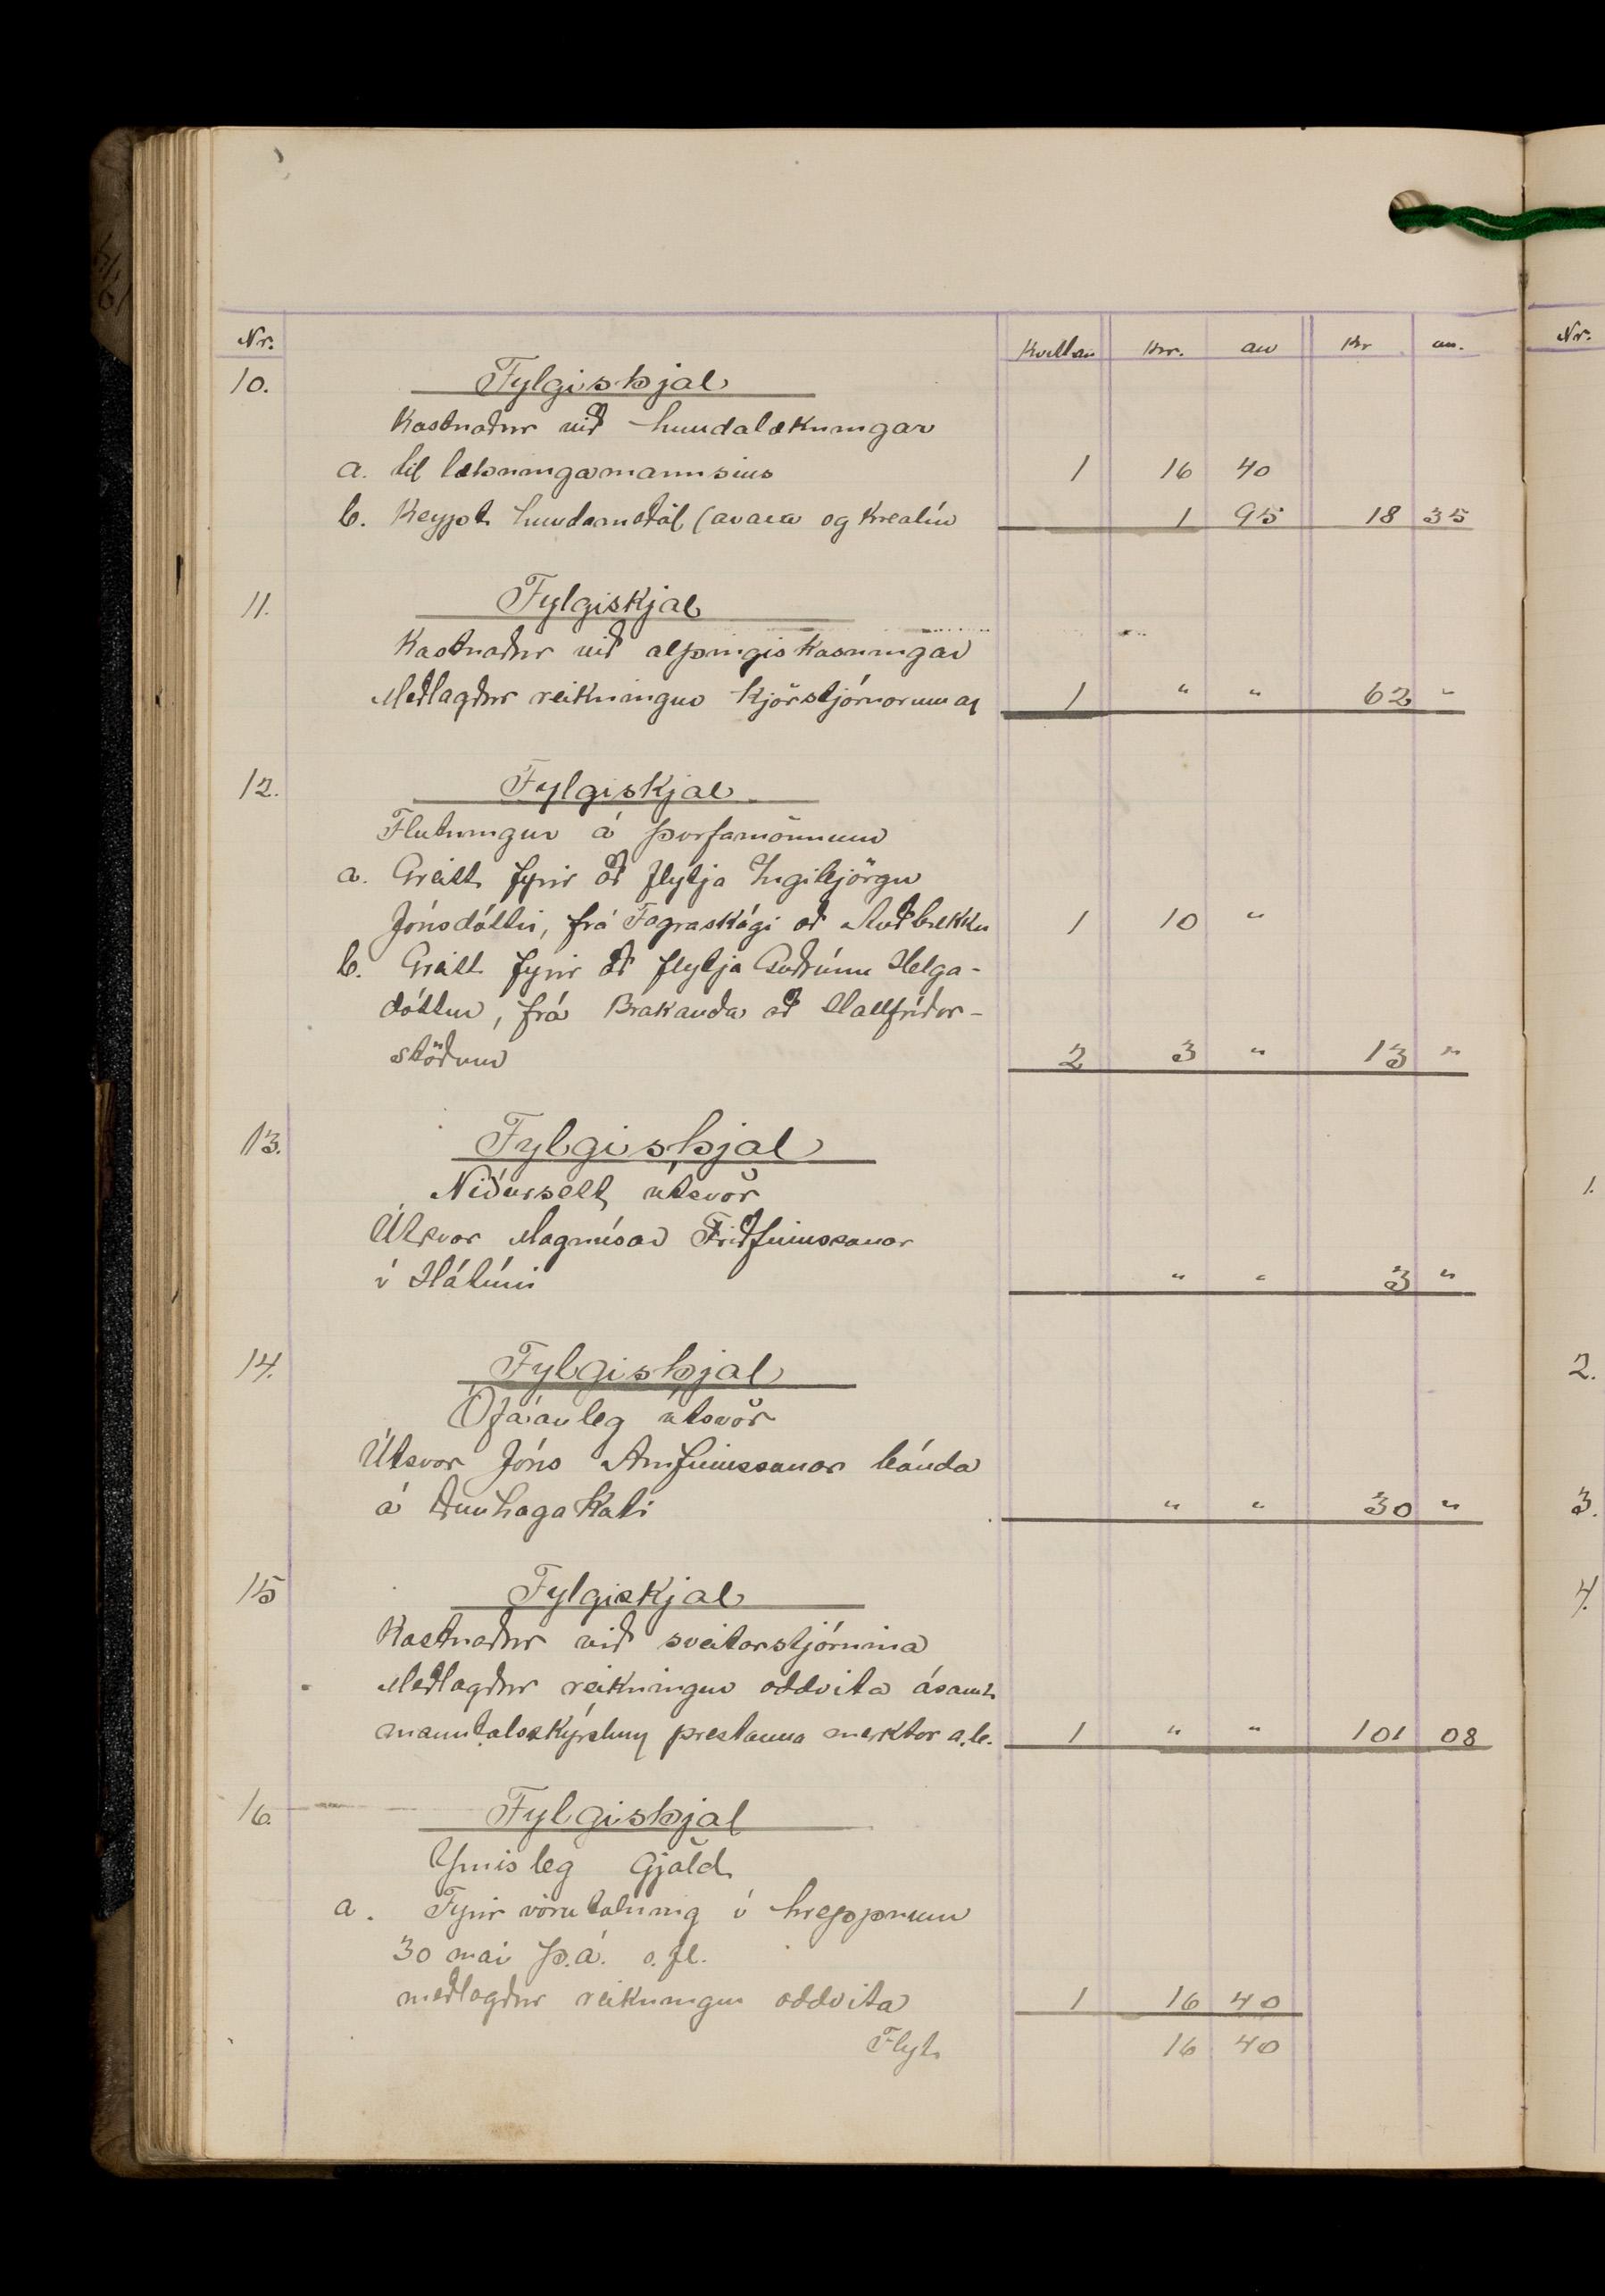 Nr. Kvittan Kr. au Kr au.
10. Fylgiskjal
Kostnaður við hundalækningar
a. til lækningamannsins 1 16 40
b. Keypt hundameðöl (areca og kreolín 1 95 18 35
11. Fylgiskjal
Kostnaður við alþingiskosningar
Meðlagður reikningur kjörstjórnarinnar 1 " " 62 "
12. Fylgiskjal
Flutningur á þurfamönnum
a. Greitt fyrir að flytja Ingibjörgu
Jónsdóttir, frá Fagraskógi að Auðbrekku 1 10 "
b. Greitt fyrir að flytja Guðrúnu Helga-
dóttur, frá Brakanda að Hallfríðar-
stöðum 2 3 " 13 "
13. Fylgiskjal
Niðursett útsvör
Útsvar Magnúsar Friðfinnssonar
í Hátúni " " 3 "
14. Fylgiskjal
Ófáanleg útsvör
Útsvar Jóns Arnfinnssonar bónda
á Dunhagakoti " " 30 "
15 Fylgiskjal
Kostnaður við sveitarstjórnina
Meðlagður reikningur oddvita ásamt
manntalsskýrslum prestanna merktar a.b. 1 " " 101 08
16. Fylgiskjal
Ýmisleg Gjöld
a. Fyrir vörutalning í hreppnum
30 mai þ.á. o.fl.
meðlagður reikningur oddvita 1 16 40
Flyt 16 40
Nr.
1.
2.
3.
4.